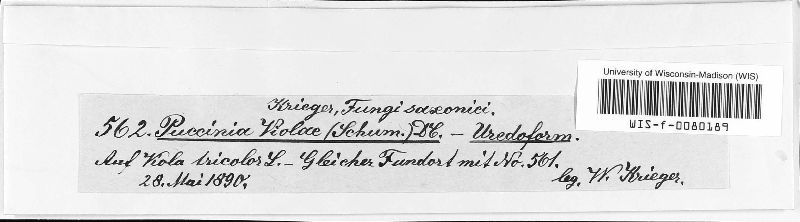 Krieger, Fungi saxonici.
562. Puccinia Violae (Schum.) DC. – Uredoform.
Auf Viola tricolor L. – Gleicher Fundort mit No. 561.
28. Mai 1890. leg. W. Krieger.
University of Wisconsin-Madison (WIS)
WIS-f-0080189